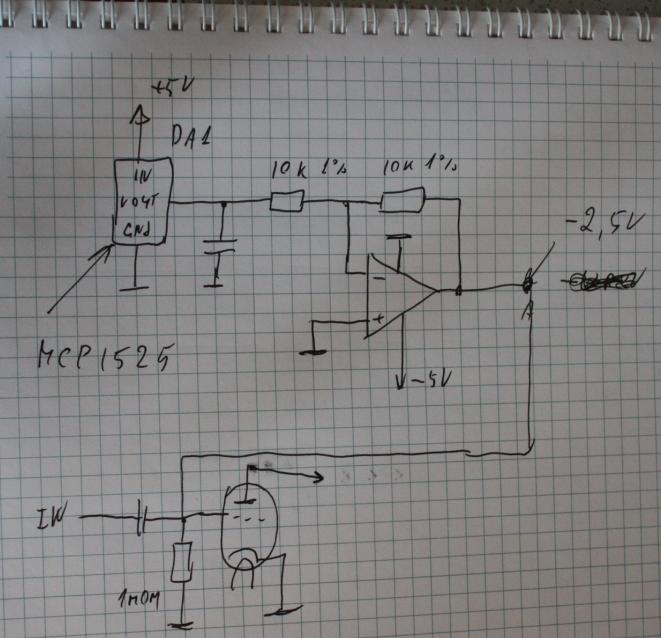 +5V
DA1
IN
VOUT
GND
10K 1%
10K 1%
-2,5V
-
+
A
-5V
MCP1525
IN
1MOM